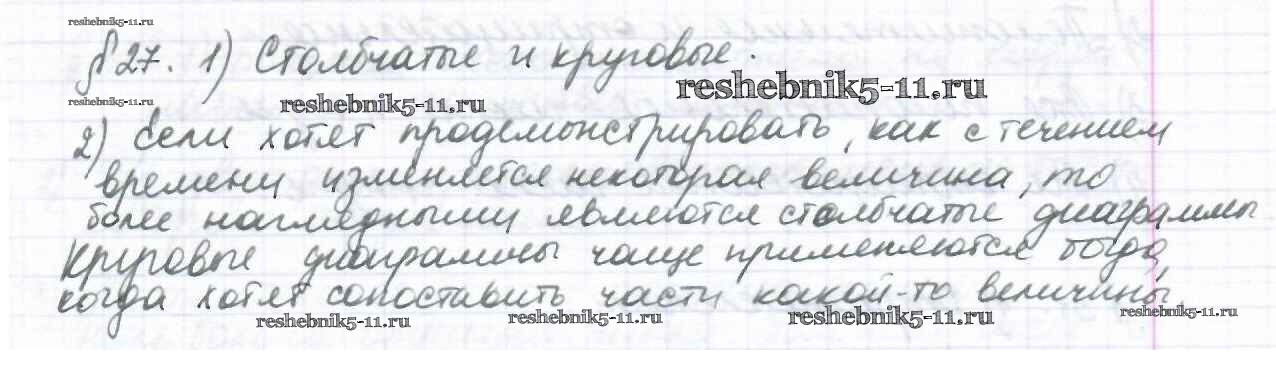 reshebnik5-11.ru
§ 27. 1) Столбчатые и круговые.
reshebnik5-11.ru
reshebnik5-11.ru
reshebnik5-11.ru
2) Если хотят продемонстрировать, как с течением
времени изменяется некоторая величина, то
более наглядными являются столбчатые диаграммы
Круговые диаграммы чаще применяются тогда,
когда хотят сопоставить части какой-то величины
reshebnik5-11.ru
reshebnik5-11.ru
reshebnik5-11.ru
reshebnik5-11.ru